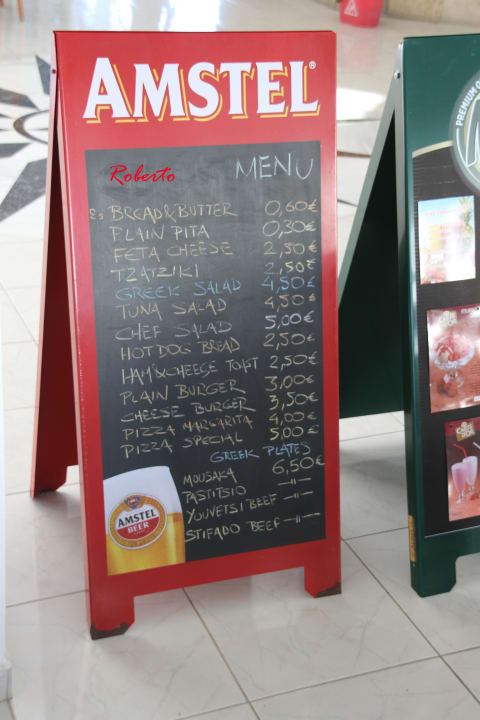 AMSTEL®
Roberto MENU
BREAD & BUTTER 0,60€
PLAIN PITA 0,30€
FETA CHEESE 2,50€
TZATZIKI 2,50€
GREEK SALAD 4,50€
TUNA SALAD 4,50€
CHEF SALAD 5,00€
HOT DOG BREAD 2,50€
HAM & CHEESE TOAST 2,50€
PLAIN BURGER 3,00€
CHEESE BURGER 3,50€
PIZZA MARGARITA 4,00€
PIZZA SPECIAL 5,00€
GREEK PLATES
MOUSAKA 6,50€
PASTITSIO —||—
YOUVETSI BEEF —||—
STIFADO BEEF —||—
AMSTEL
BEER
PREMIUM